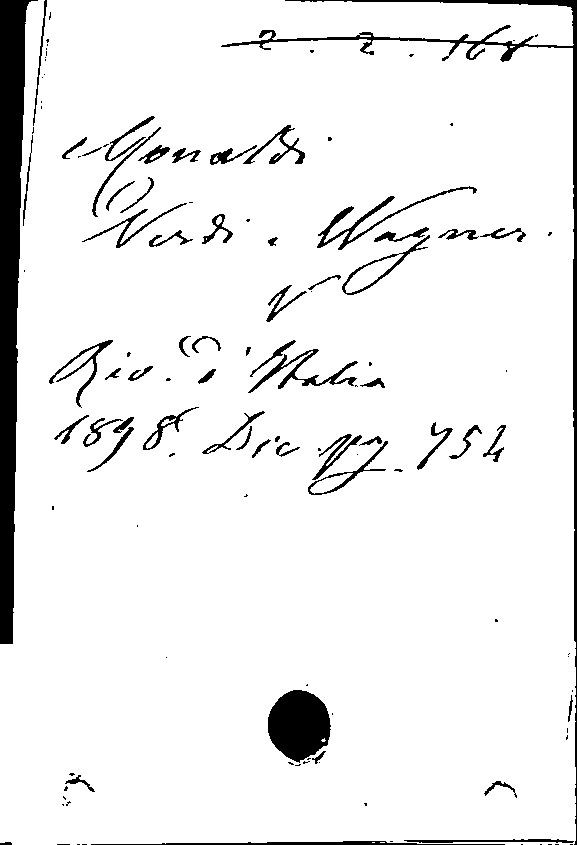 2. 2. 168
Monaldi
Verdi e Wagner.
V
Riv. d'Italia
1898. Dic pag. 754